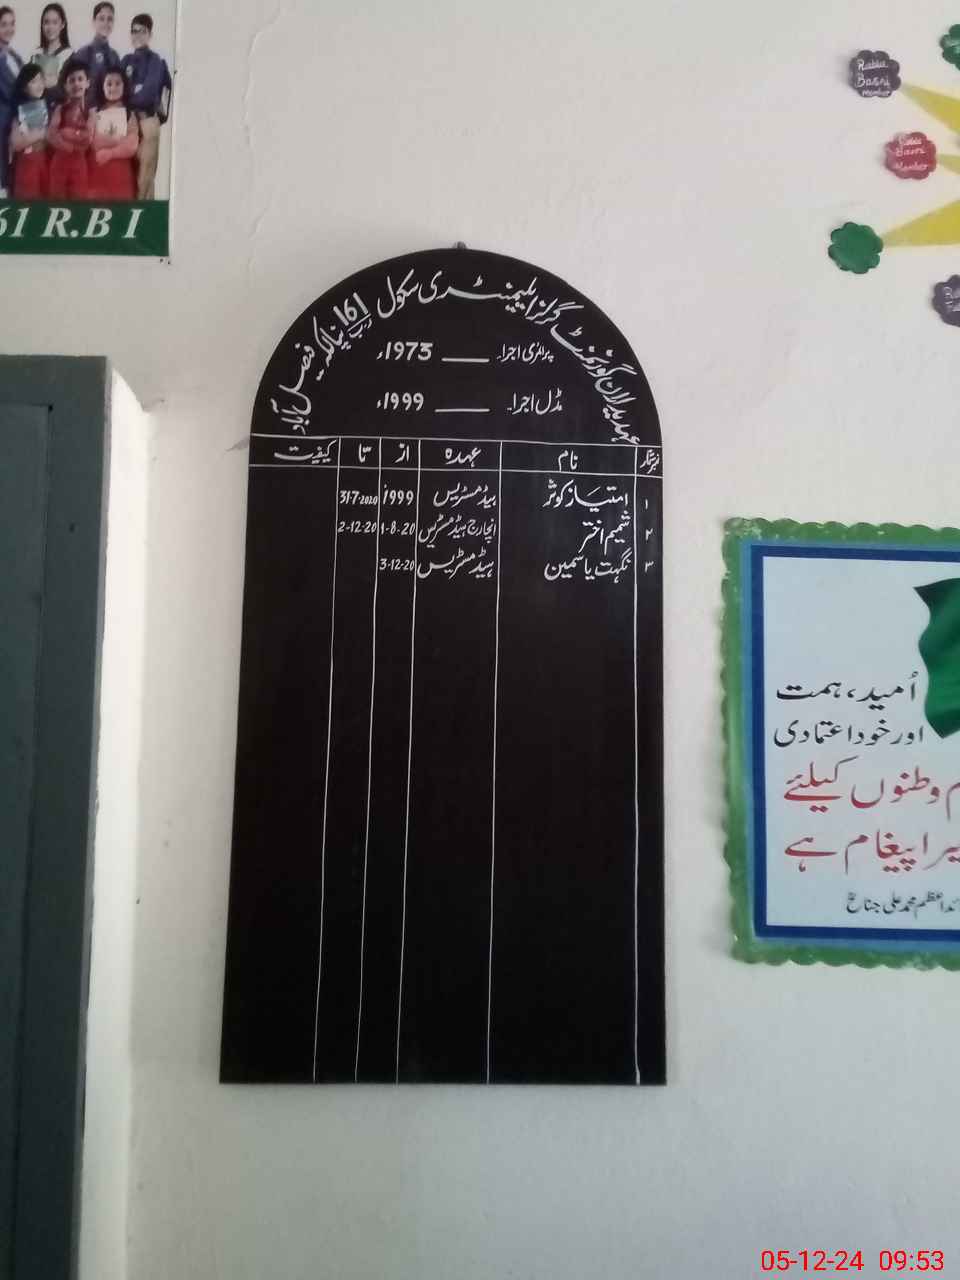 61 R.B I
Rabia
Basri
Member
Rabia
Basri
Member
عہدیداران گورنمنٹ گرلز ایلیمینٹری سکول 161 رب پینالکہ فیصل آباد
پرائمری اجراء ـــــ 1973ء
مڈل اجراء ـــــ 1999ء
نمبر شمار نام عہدہ از تا کیفیت
۱ امتیاز کوثر ہیڈ مسٹریس 1999ء 31-7-2020
۲ شمیم اختر انچارج ہیڈ مسٹریس 1-8-20 2-12-20
۳ نگہت یاسمین ہیڈ مسٹریس 3-12-20
اُمید، ہمت
اور خود اعتمادی
وطنوں کیلئے
پیغام ہے
محمد علی جناح
05-12-24 09:53